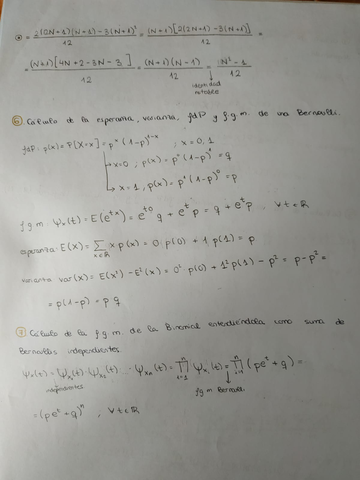 ⊛ = 2(2N+1)(N+1)-3(N+1)² / 12 = (N+1)[2(2N+1)-3(N+1)] / 12 =
= (N+1)[4N+2-3N-3] / 12 = (N+1)(N-1) / 12 = N²-1 / 12
identidad
notable
⑥ Cálculo de la esperanza, varianza, fdP y f.g.m. de una Bernoulli.
fdP: p(x) = P(X=x) = pˣ(1-p)¹⁻ˣ ; x=0,1
→ x=0, p(x) = p⁰(1-p)¹ = q
→ x=1, p(x) = p¹(1-p)⁰ = p
f.g.m: Ψₓ(t) = E(eᵗˣ) = eᵗ⁰ q + eᵗ p = q + eᵗp , ∀ t∈ℝ
esperanza: E(X) = Σ x·p(x) = 0·p(0) + 1·p(1) = p
x∈ℝ
varianza: var(X) = E(X²) - E²(X) = 0² p(0) + 1² p(1) - p² = p - p² =
= p(1-p) = p q
⑦ Cálculo de la f.g.m. de la Binomial entendiéndola como suma de
Bernoullis independientes.
Ψₓ(t) = Ψₓ₁(t)·Ψₓ₂(t)···Ψₓₙ(t) = ∏ⁿᵢ₌₁ Ψₓᵢ(t) = ∏ⁿᵢ₌₁ (peᵗ + q) =
independientes
f.g.m Bernoulli.
= (peᵗ + q)ⁿ , ∀ t∈ℝ